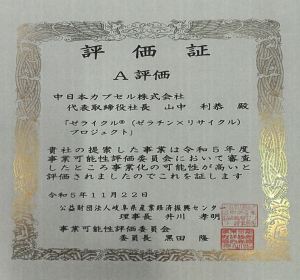 評価証
A評価
中日本カプセル株式会社
代表取締役社長 山中 利恭 殿
「ゼライクル®(ゼラチン×リサイクル)
プロジェクト」
貴社の提案した事業は令和5年度
事業可能性評価委員会において審査
したところ事業化の可能性が高いと
評価されましたのでこれを証します
令和5年11月22日
公益財団法人岐阜県産業経済振興センター
理事長 井川 孝明
事業可能性評価委員会
委員長 黒田 隆